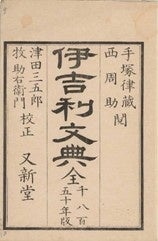 手塚律藏 閲
西周助
伊吉利文典 全
千八百
五十年版
津田三五郎
牧助右衛門 校正
又新堂